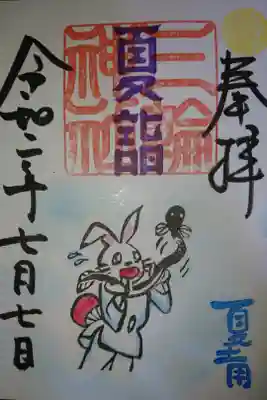 奉拝
夏土用
三輪
神社
夏詣
令和二年七月七日